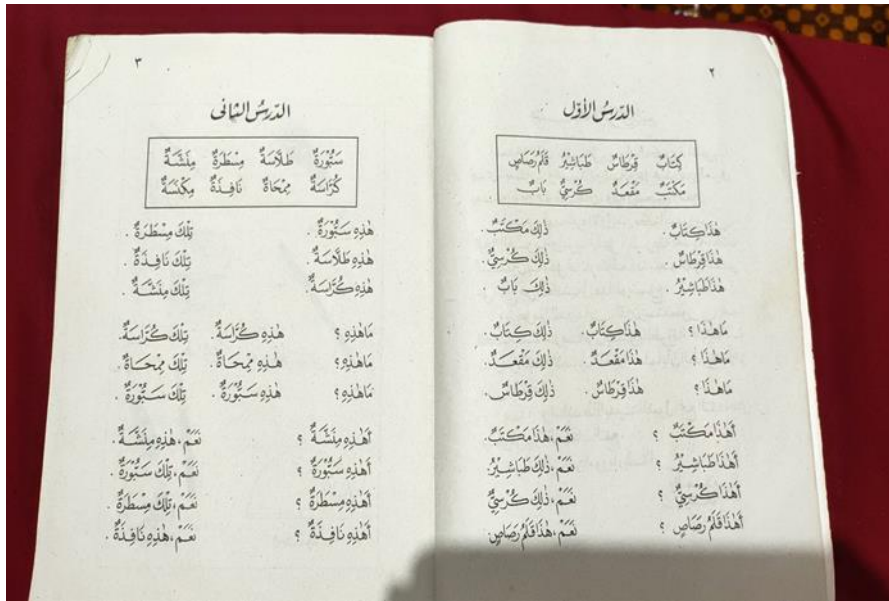 ٢
الدّرسُ الأوّل
كِتَابٌ قِرْطَاسٌ طَبَاشِيْرُ قَلَمُ رَصَاصٍ
مَكْتَبٌ مَقْعَدٌ كُرْسِيٌّ بَابٌ
هٰذَا كِتَابٌ . ذٰلِكَ مَكْتَبٌ .
هٰذَا قِرْطَاسٌ . ذٰلِكَ كُرْسِيٌّ .
هٰذَا طَبَاشِيْرُ . ذٰلِكَ بَابٌ .
مَا هٰذَا ؟ هٰذَا كِتَابٌ . ذٰلِكَ كِتَابٌ .
مَا هٰذَا ؟ هٰذَا مَقْعَدٌ . ذٰلِكَ مَقْعَدٌ .
مَا هٰذَا ؟ هٰذَا قِرْطَاسٌ . ذٰلِكَ قِرْطَاسٌ .
أَهٰذَا مَكْتَبٌ ؟ نَعَمْ، هٰذَا مَكْتَبٌ .
أَهٰذَا طَبَاشِيْرُ ؟ نَعَمْ، ذٰلِكَ طَبَاشِيْرُ .
أَهٰذَا كُرْسِيٌّ ؟ نَعَمْ، ذٰلِكَ كُرْسِيٌّ
أَهٰذَا قَلَمُ رَصَاصٍ ؟ نَعَمْ، هٰذَا قَلَمُ رَصَاصٍ
٣
الدّرسُ الثانى
سَبُّوْرَةٌ طَلَّاسَةٌ مِسْطَرَةٌ مِنَشَّةٌ
كُرَّاسَةٌ مِمْحَاةٌ نَافِذَةٌ مِكْنَسَةٌ
هٰذِهِ سَبُّوْرَةٌ . تِلْكَ مِسْطَرَةٌ .
هٰذِهِ طَلَّاسَةٌ . تِلْكَ نَافِذَةٌ .
هٰذِهِ كُرَّاسَةٌ . تِلْكَ مِنَشَّةٌ .
مَا هٰذِهِ ؟ هٰذِهِ كُرَّاسَةٌ . تِلْكَ كُرَّاسَةٌ .
مَا هٰذِهِ ؟ هٰذِهِ مِمْحَاةٌ . تِلْكَ مِمْحَاةٌ .
مَا هٰذِهِ ؟ هٰذِهِ سَبُّوْرَةٌ . تِلْكَ سَبُّوْرَةٌ .
أَهٰذِهِ مِنَشَّةٌ ؟ نَعَمْ، هٰذِهِ مِنَشَّةٌ .
أَهٰذِهِ سَبُّوْرَةٌ ؟ نَعَمْ، تِلْكَ سَبُّوْرَةٌ .
أَهٰذِهِ مِسْطَرَةٌ ؟ نَعَمْ، تِلْكَ مِسْطَرَةٌ .
أَهٰذِهِ نَافِذَةٌ ؟ نَعَمْ، هٰذِهِ نَافِذَةٌ .